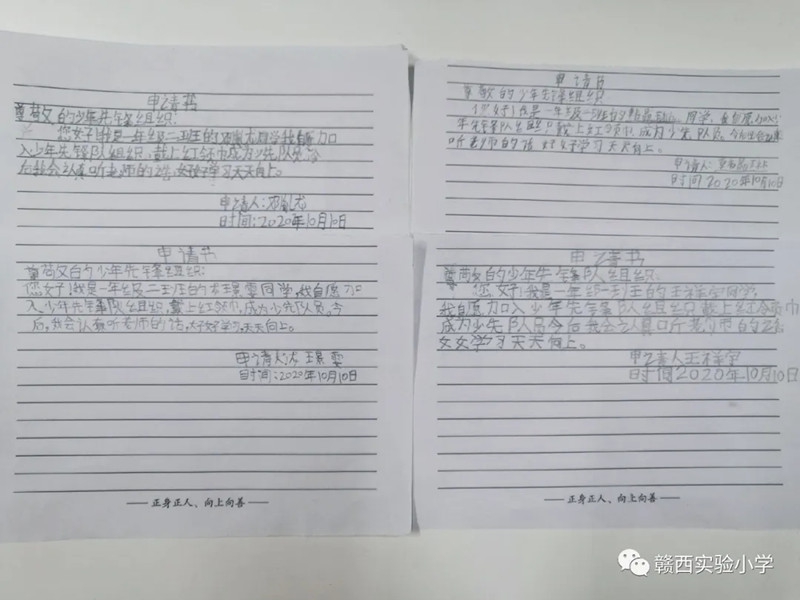 申请书
尊敬的少年先锋队组织:
您好!我是一年级二班的 同学,我自愿加
入少年先锋队组织,戴上红领巾成为少先队员,今
后我会认真听老师的话,好好学习天天向上。
申请人:
时间:2020年10月10日
申请书
尊敬的少年先锋队组织:
您好!我是一年级 班的 同学,我自愿加入少
年先锋队组织戴上红领巾,成为少先队员,今后我会认真
听老师的话好好学习天天向上。
申请人:
时间2020年10月10日
申请书
尊敬的少年先锋队组织:
您好!我是一年级二班的 同学,我自愿加
入少年先锋队组织,戴上红领巾,成为少先队员。今
后,我会认真听老师的话,好好学习,天天向上。
申请人
时间:2020年10月10日
正身正人、向上向善
申请书
尊敬的少年先锋队组织:
您好!我是一年级二班的王梓 同学,
我自愿加入少年先锋队组织戴上红领巾
成为少先队员今后我会认真听老师的话
好好学习天天向上。
申请人王梓
时间2020年10月10日
正身正人、向上向善
赣西实验小学